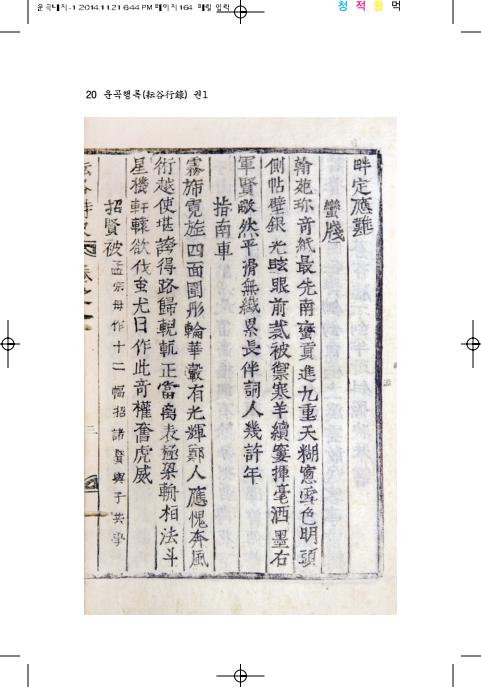 운곡내지-1 2014.11.21 6:44 PM 페이지164 매일 입력
청 적 황 먹
20 운곡행록(耘谷行錄) 권1
畔定應難
蠻牋
翰苑珎奇紙最先南蠻貢進九重天糊窓雪色明頭
側帖壁銀光眩眼前裁被禦寒羊續宴揮毫洒墨右
軍賢敵然平滑無纖累長伴詞人幾許年
指南車
霧斾霓旌四面圍彤輪華轂有光輝鄭人應愧奔風
術越使堪誇得路歸輗軏正當离表極梁輈相法斗
星機軒轅欲伐蚩尤日作此奇權奮虎威
招賢被
孟宗母作十二幅招諸賢與子共學
耘谷詩史 卷之一